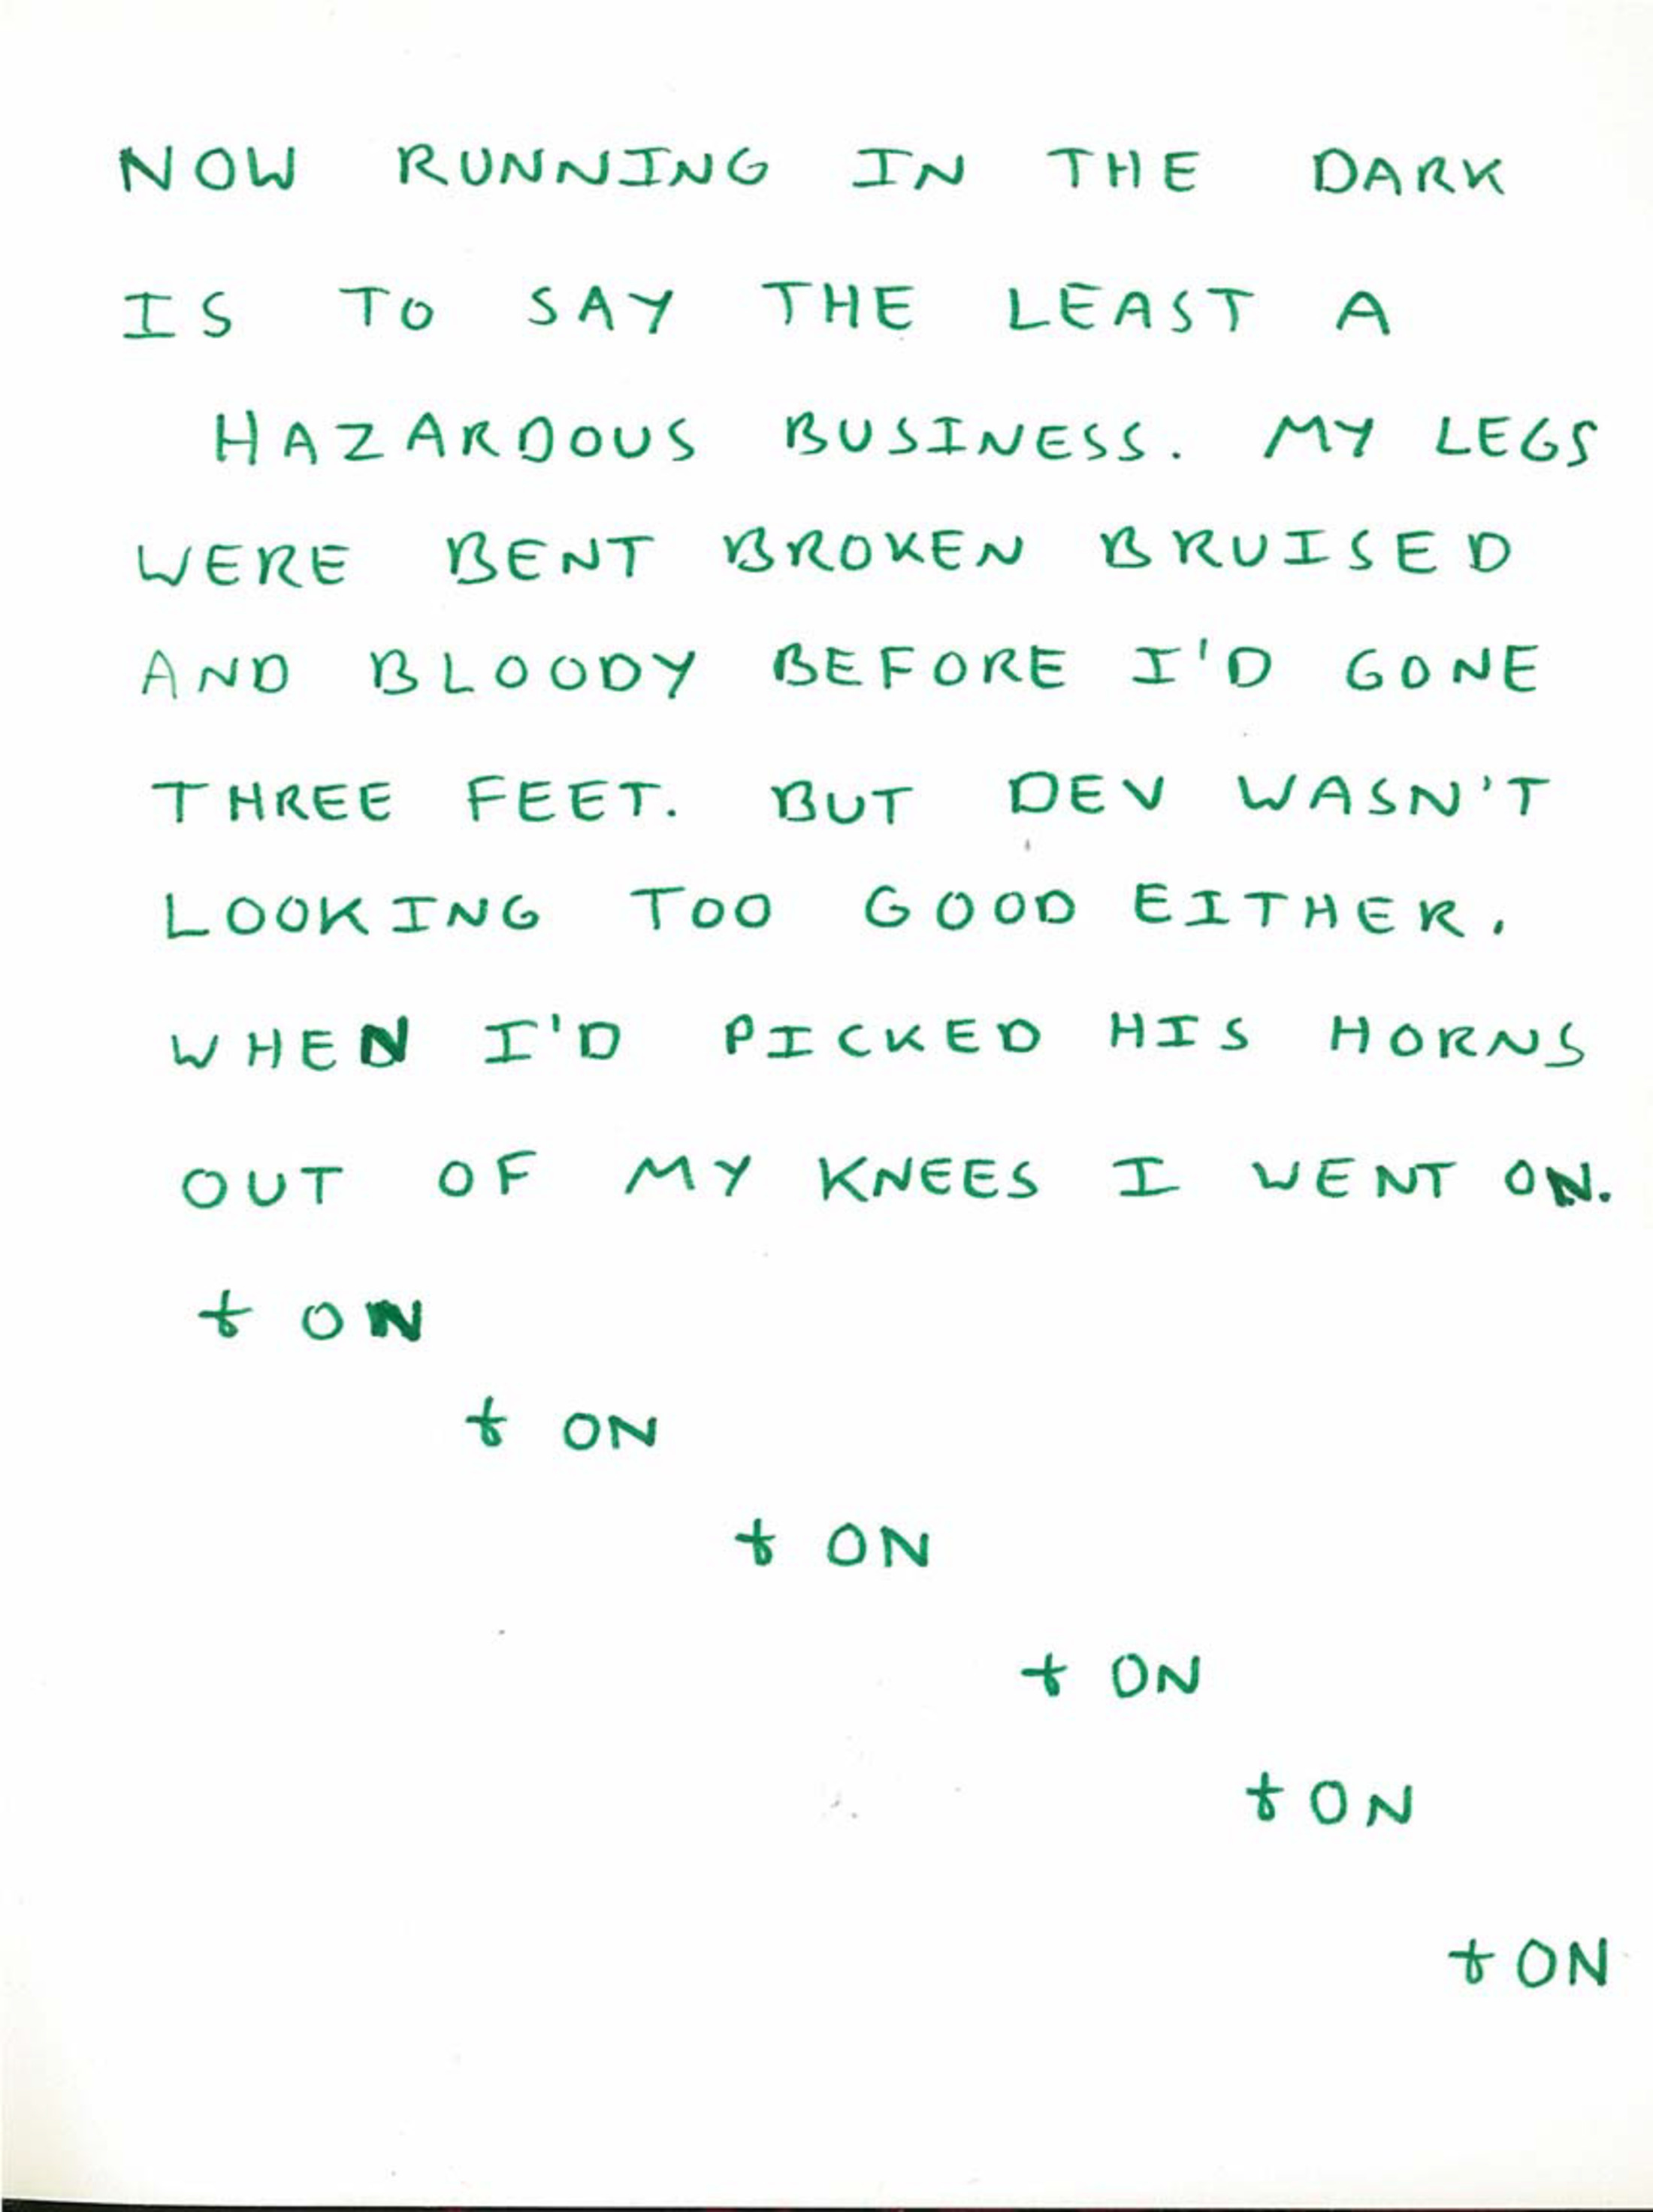 NOW RUNNING IN THE DARK
IS TO SAY THE LEAST A
HAZARDOUS BUSINESS. MY LEGS
WERE BENT BROKEN BRUISED
AND BLOODY BEFORE I'D GONE
THREE FEET. BUT DEV WASN'T
LOOKING TOO GOOD EITHER.
WHEN I'D PICKED HIS HORNS
OUT OF MY KNEES I WENT ON.
& ON
& ON
& ON
& ON
& ON
& ON